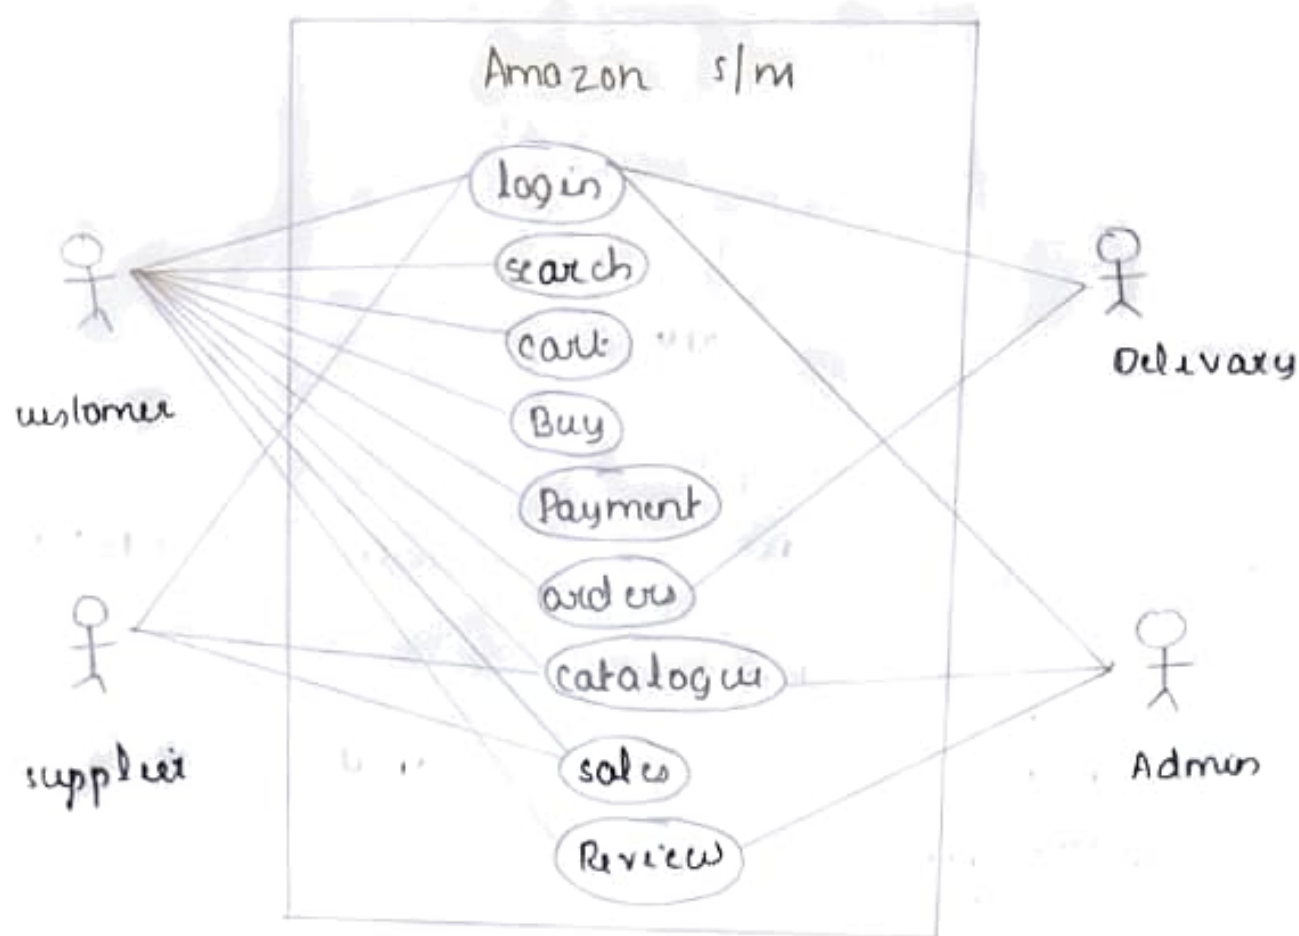 Amazon s/m
login
search
cart
Buy
Payment
orders
catalogue
sales
Review
customer
supplier
Delivary
Admin